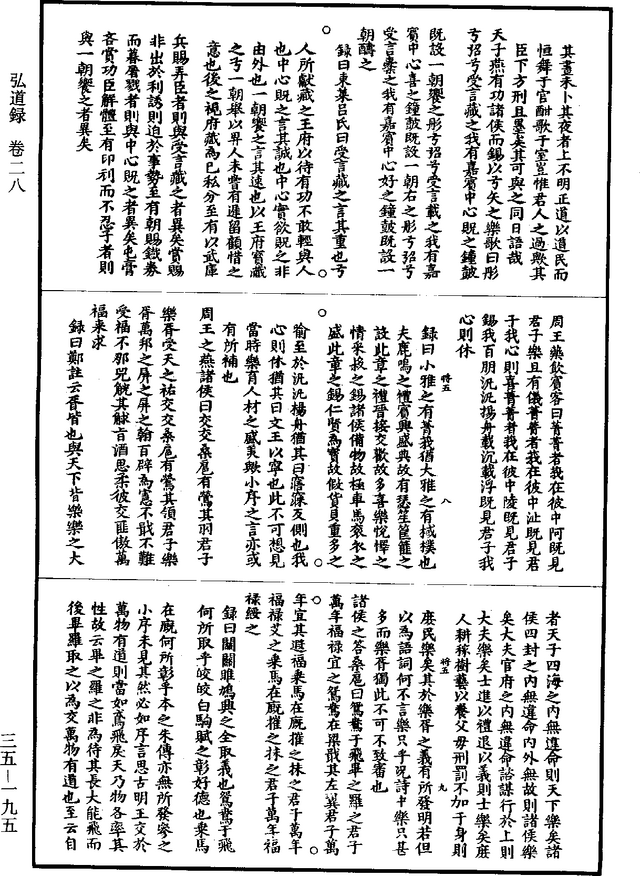 其晝未卜其夜者上不明正道以道民而
恒舞于宮酣歌于室豈惟君人之過歟其
臣下方刑且墨矣其可與之同日語哉
天子燕有功諸侯而錫以弓矢之樂歌曰彤
弓弨兮受言藏之我有嘉賓中心貺之鐘鼓
既設一朝饗之彤弓弨兮受言載之我有嘉
賓中心喜之鐘鼓既設一朝右之彤弓弨兮
受言櫜之我有嘉賓中心好之鐘鼓既設一
朝醻之
錄曰東萊呂氏曰受言藏之言其重也弓
人所獻藏之王府以待有功不敢輕與人
也中心貺之言其誠也中心實欲貺之非
由外也一朝饗之言其速也以王府寶藏
之弓一朝舉以畀人未嘗有遲留顧惜之
意也後之視府藏為己私分至有以武庫
兵賜弄臣者則與受言藏之者異矣賞賜
非出於利誘則迫於事勢至有朝賜鐵券
而暮屠戮者則與中心貺之者異矣屯膏
吝賞功臣解體至有印刓而不忍予者則
與一朝饗之者異矣
弘道録 卷二八
周王燕飲賓客曰菁菁者莪在彼中阿既見
君子樂且有儀菁菁者莪在彼中沚既見君
子我心則喜菁菁者莪在彼中陵既見君子
錫我百朋汎汎揚舟載沉載浮既見君子我
心則休
錄曰小雅之有菁莪猶大雅之有棫樸也
夫鹿鳴之禮賓興盛典故有瑟笙筐篚之
設此章之禮晉接交歡故多喜樂悅懌之
情采菽之錫諸侯備物故極車馬衮衣之
盛此章之錫仁賢為寶故倣貨貝重多之
喻至於汎汎楊舟猶其曰寤寐反側也我
心則休猶其曰文王以寧也此不可想見
當時樂育人材之盛美歟小序之言亦或
有所補也
周王之燕諸侯曰交交桑扈有鶯其羽君子
樂胥受天之祜交交桑扈有鶯其領君子樂
胥萬邦之屏之屏之翰百辟為憲不戢不難
受福不那兕觥其觩旨酒思柔彼交匪傲萬
福來求
錄曰鄭註云胥皆也與天下皆樂樂之大
者天子四海之內無違命則天下樂矣諸
侯四封之內無違命內外無故則諸侯樂
矣大夫官府之內無違命諮謀行於上則
大夫樂矣士進以禮退以義則士樂矣庶
人耕稼樹藝以養父母刑罰不加于身則
庶民樂矣其於樂胥之義有所發明若但
以為語詞何不言樂只乎況詩中樂只甚
多而樂胥獨此不可不致審也
諸侯之答桑扈曰鴛鴦于飛畢之羅之君子
萬年福祿宜之鴛鴦在梁戢其左翼君子萬
年宜其遐福乘馬在廐摧之秣之君子萬年
福祿艾之乘馬在廐摧之抹之君子萬年福
祿綏之
錄曰關關雎鳩興之全取義也鴛鴦于飛
何所取乎皎皎白駒賦之彰好德也乘馬
在廐何所彰乎本之朱傳亦無所發參之
小序未見其然必如序言思古明王交於
萬物有道則當如鳶飛戾天乃物各率其
性故云畢之羅之非為待其長大能飛而
後畢羅取之以為交萬物有道也至云自
三五—一九五